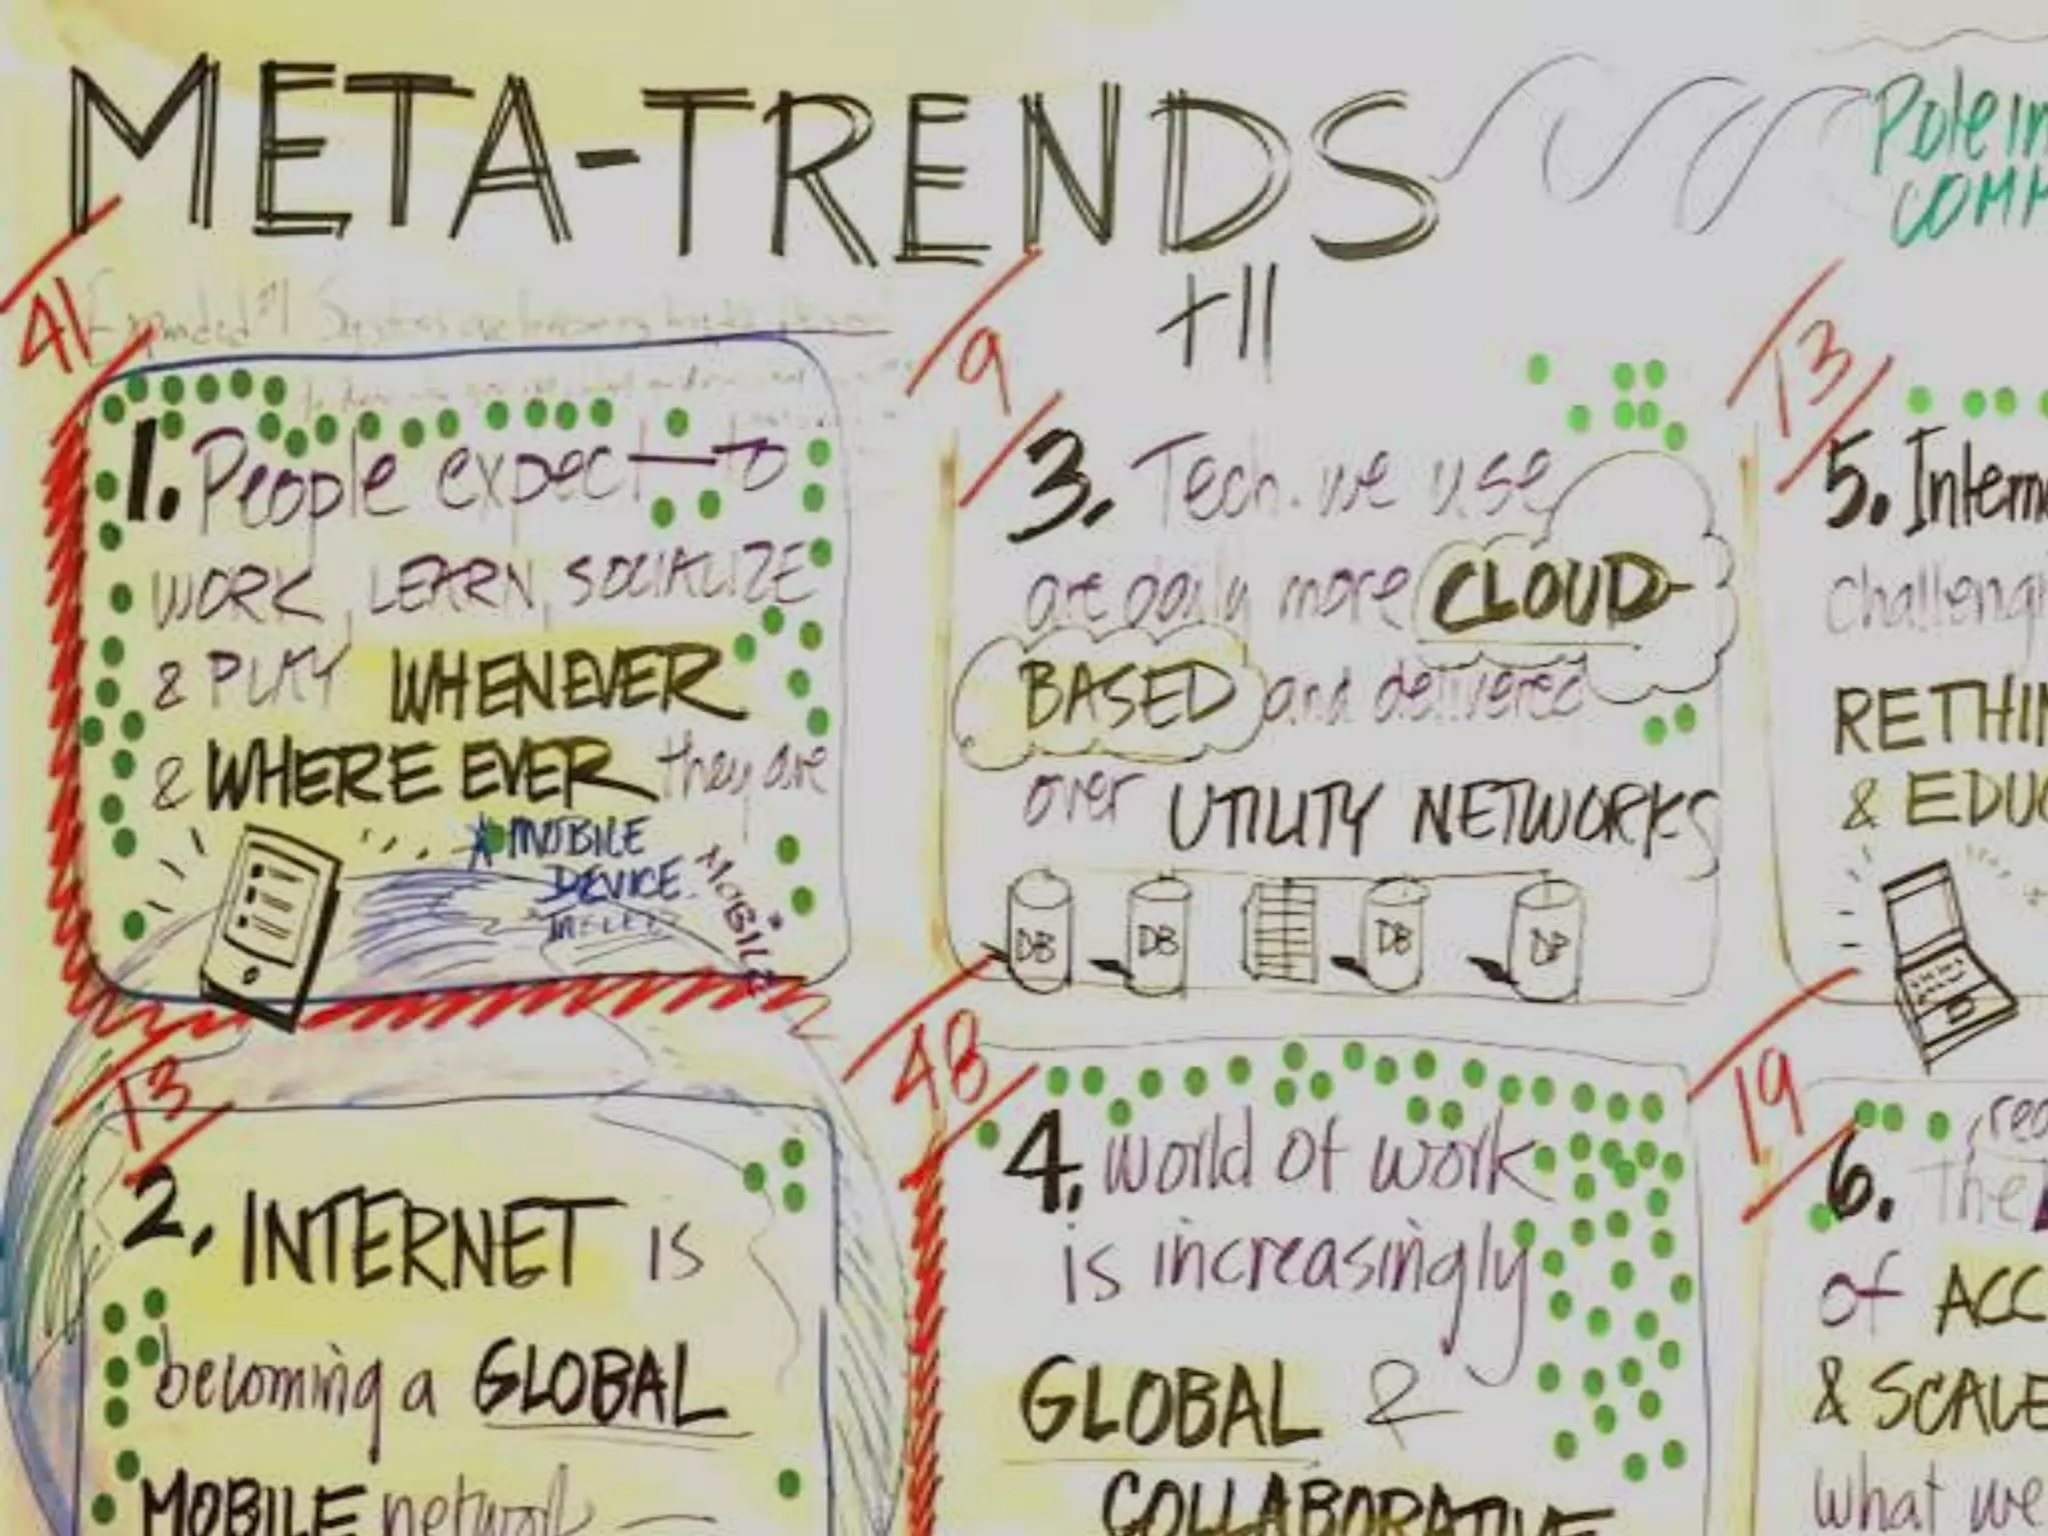 META-TRENDS
+11
Pole in
COMM
41
Expanded #1 Systems are becoming
1. People expect to
WORK, LEARN, SOCIALIZE
& PLAY WHENEVER
& WHERE EVER they are
* MOBILE
DEVICE
MOBILE
9
3. Tech. we use
are daily more CLOUD-
BASED and delivered
over UTILITY NETWORKS
DB DB DB DB
13
5. Intern
challeng
RETHIN
& EDUC
13
2. INTERNET is
becoming a GLOBAL
MOBILE network
48
4. world of work
is increasingly
GLOBAL &
COLLABORATIVE
19
6. The
of ACC
& SCALE
what we